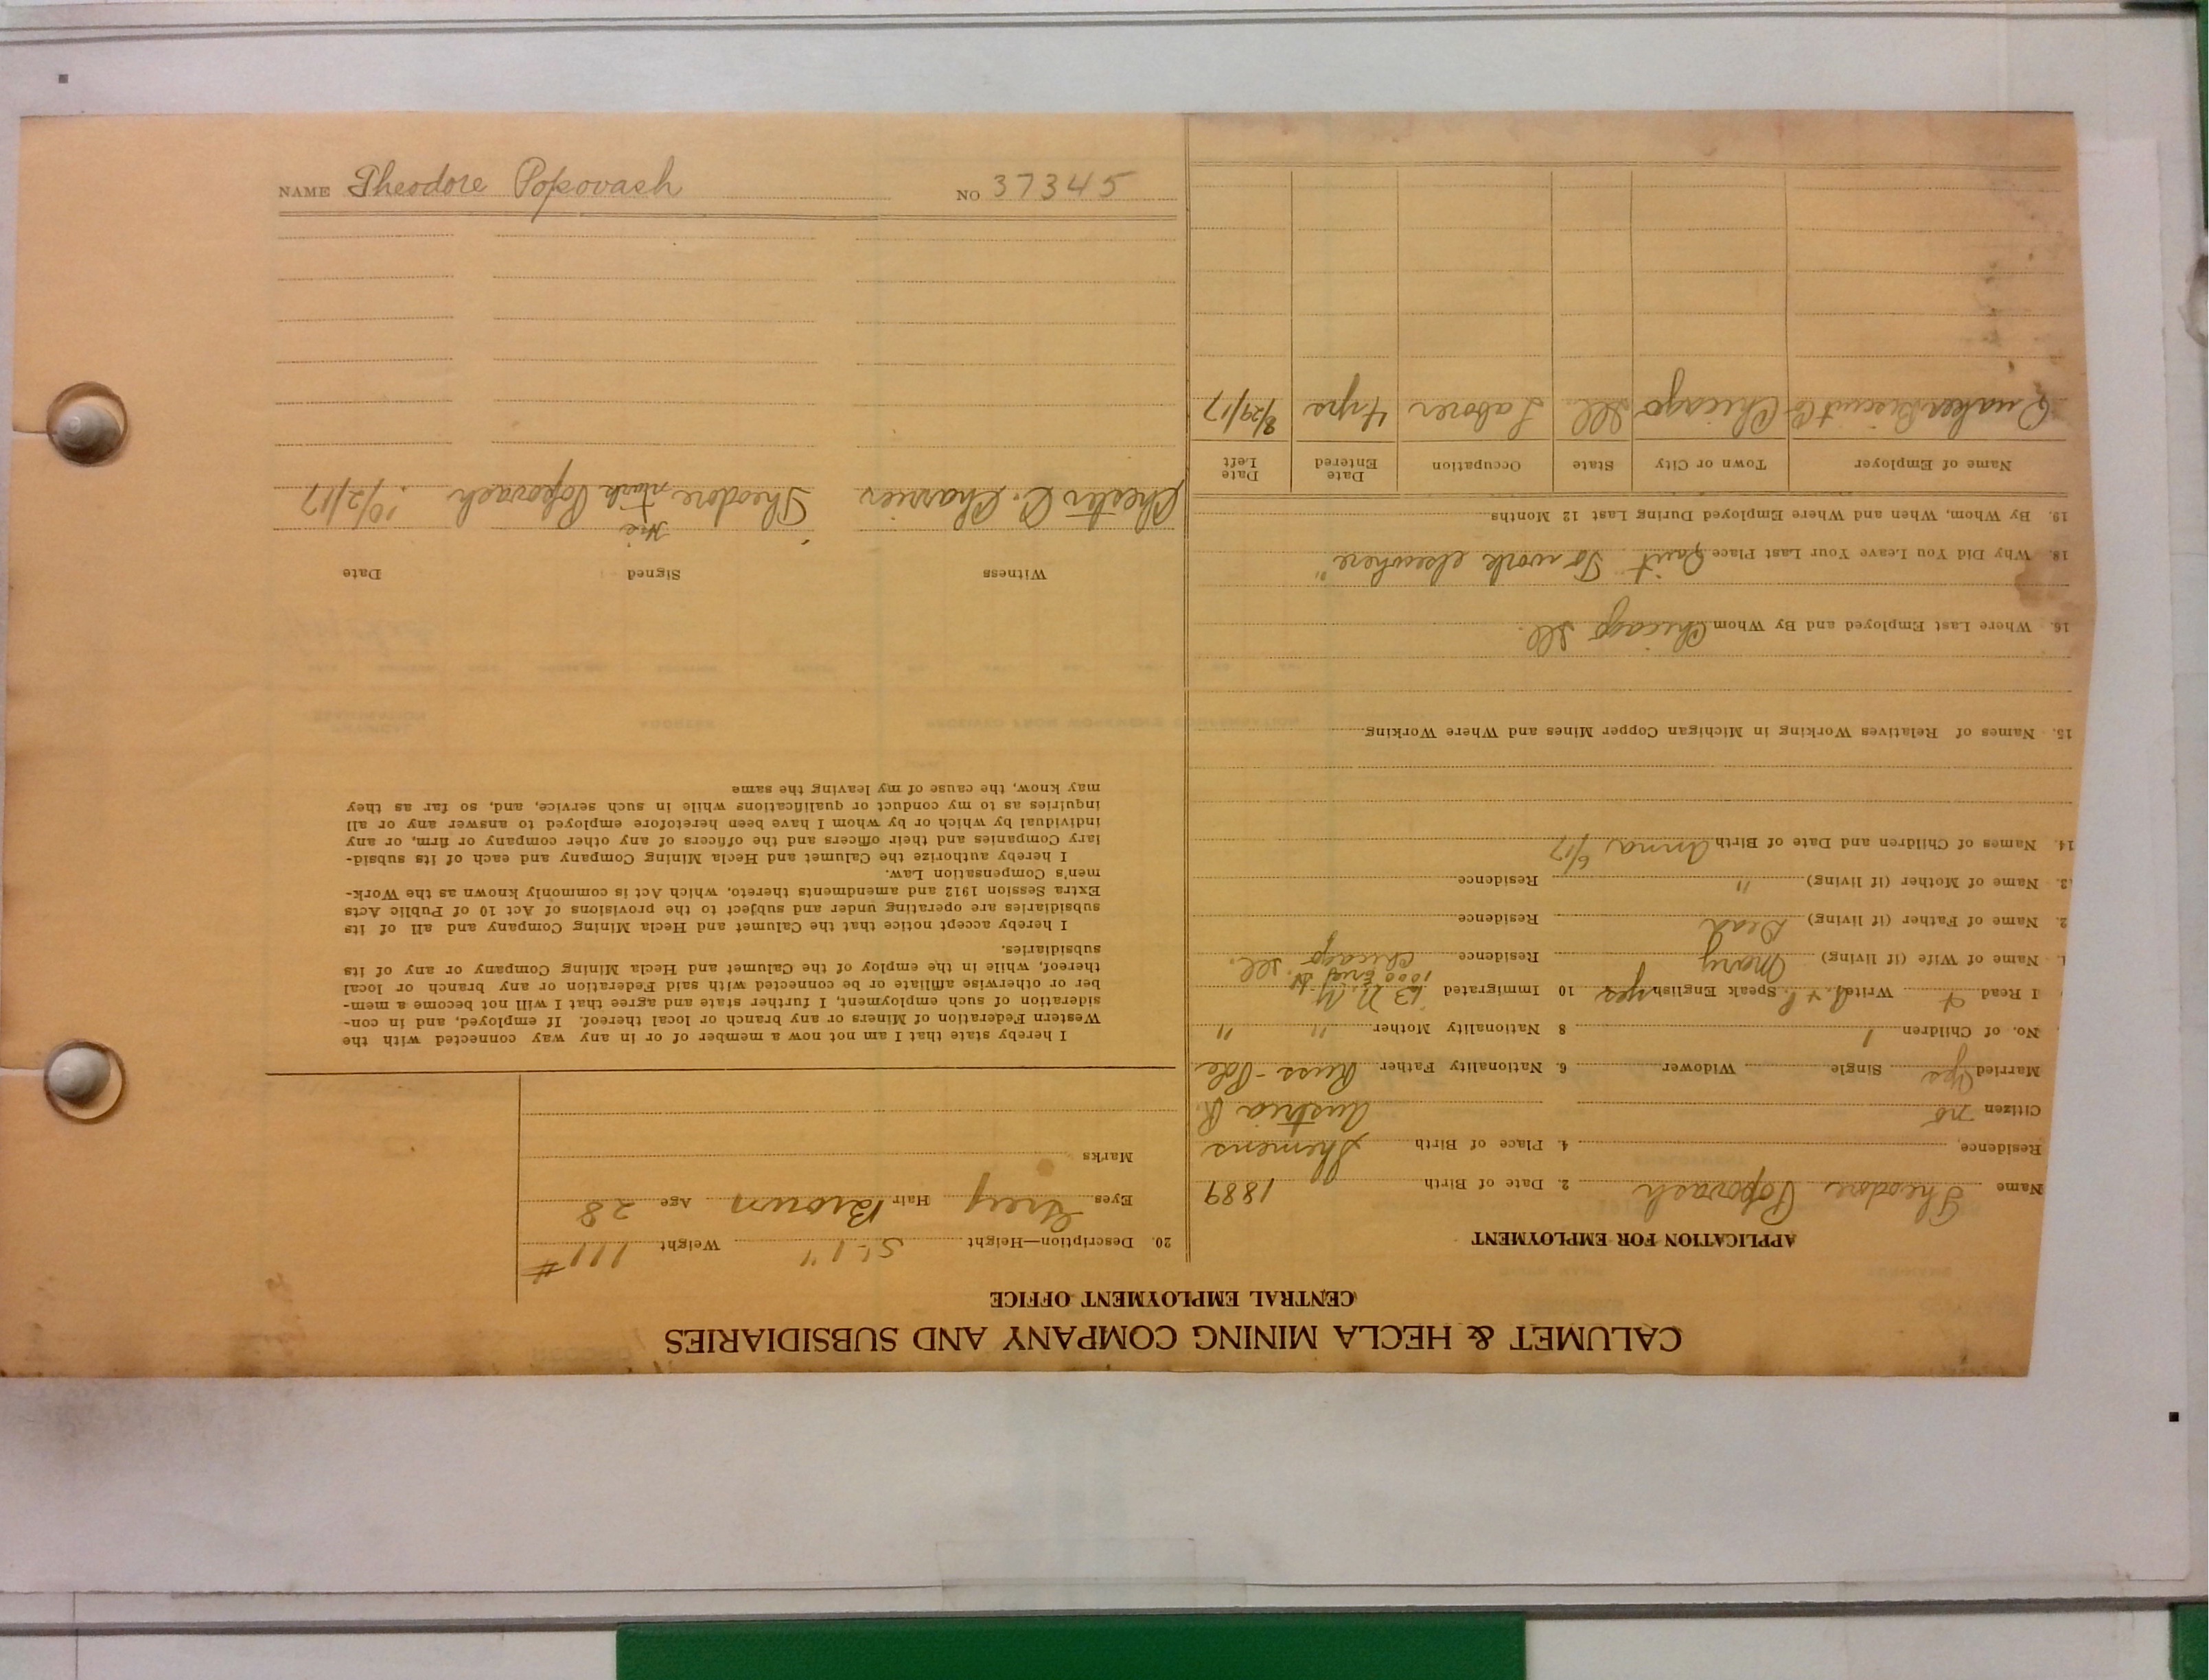 CALUMET & HECLA MINING COMPANY AND SUBSIDIARIES
CENTRAL EMPLOYMENT OFFICE
APPLICATION FOR EMPLOYMENT
Name Theodore Popovash 2. Date of Birth 1889
Residence, 4. Place of Birth
Citizen no Austria R.
Married yes Single Widower 6. Nationality Father Russ-Pole
No. of Children 1 8 Nationality Mother " "
I Read Write Speak English yes 10 Immigrated N.Y.
1. Name of Wife (if living) Mary Residence Chicago Ill.
2. Name of Father (if living) Dead Residence
3. Name of Mother (if living) " Residence
14. Names of Children and Date of Birth Anna 6/17
15. Names of Relatives Working in Michigan Copper Mines and Where Working
16. Where Last Employed and By Whom Chicago Ill.
18. Why Did You Leave Your Last Place Quit "To work elsewhere"
19. By Whom, When and Where Employed During Last 12 Months
Name of Employer Town or City State Occupation Date Entered Date Left
Quaker Biscuit Co Chicago Ill. Laborer 4 yrs 8/29/17
20. Description—Height 5'-1" Weight 111#
Eyes Grey Hair Brown Age 28
Marks
I hereby state that I am not now a member of or in any way connected with the
Western Federation of Miners or any branch or local thereof. If employed, and in con-
sideration of such employment, I further state and agree that I will not become a mem-
ber or otherwise affiliate or be connected with said Federation or any branch or local
thereof, while in the employ of the Calumet and Hecla Mining Company or any of its
subsidiaries.
I hereby accept notice that the Calumet and Hecla Mining Company and all of its
subsidiaries are operating under and subject to the provisions of Act 10 of Public Acts
Extra Session 1912 and amendments thereto, which Act is commonly known as the Work-
men's Compensation Law.
I hereby authorize the Calumet and Hecla Mining Company and each of its subsid-
iary Companies and their officers and the officers of any other company or firm, or any
individual by which or by whom I have been heretofore employed to answer any or all
inquiries as to my conduct or qualifications while in such service, and, so far as they
may know, the cause of my leaving the same
Witness Signed Date
His
Chester C. Charrier Theodore + Popovash 10/2/17
mark
NAME Theodore Popovash NO 37345